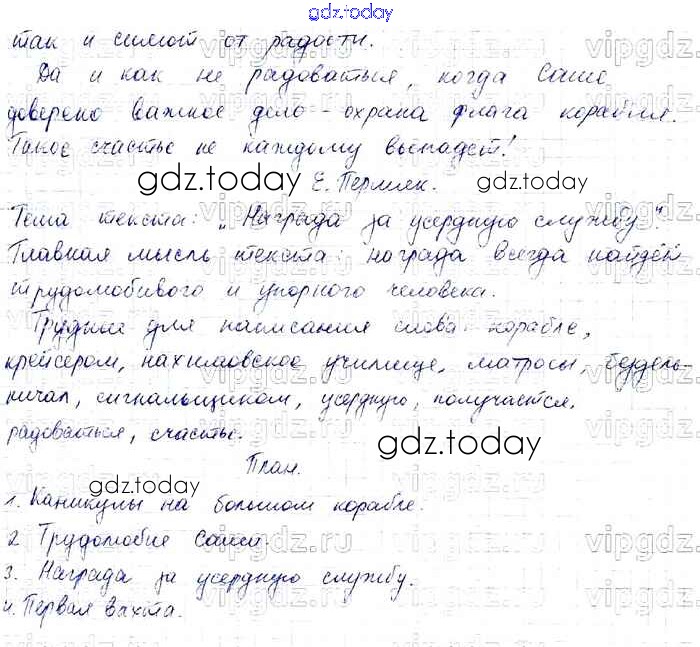 gdz.today
так и сияют от радости.
Да и как не радоваться, когда Саше
доверено важное дело - охрана флага корабля.
Такое счастье не каждому выпадет!
gdz.today Е. Пермяк.
gdz.today
Тема текста: „Награда за усердную службу".
Главная мысль текста: награда всегда найдёт
трудолюбивого и упорного человека.
Трудные для написания слова: корабле,
крейсером, нахимовское училище, матросы, бездель-
ничал, сигнальщиком, усердную, получается,
радоваться, счастье.
gdz.today
План.
gdz.today
1. Каникулы на большом корабле.
2. Трудолюбие Саши.
3. Награда за усердную службу.
4. Первая вахта.